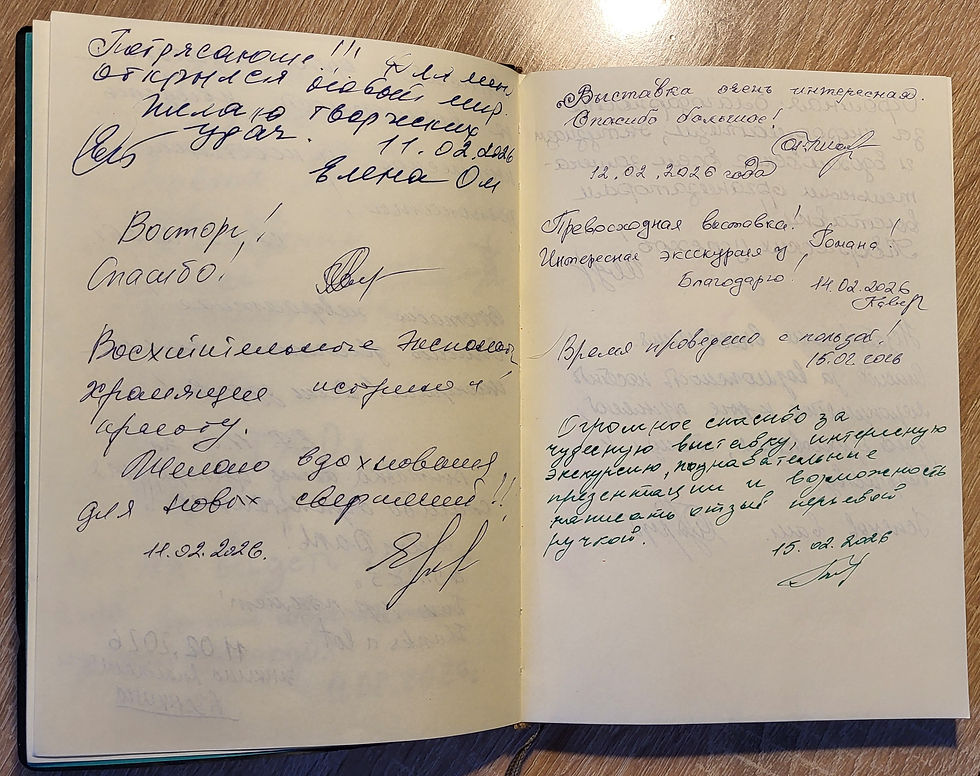 Потрясающе!!! Для меня
открылся особый мир.
Желаю творческих
удач.
11.02.2026
Елена Ом
Восторг!
Спасибо!
Восхитительные экспонаты
хранящие историю и
красоту.
Желаю вдохновения
для новых свершений!!
11.02.2026.
Выставка очень интересная.
Спасибо большое!
12.02.2026 года
Превосходная выставка!
Интересная экскурсия у Романа!
Благодарю! 14.02.2026
Время проведено с пользой!
15.02.2026
Огромное спасибо за
чудесную выставку, интересную
экскурсию, познавательные
презентации и возможность
написать отзыв перьевой
ручкой.
15.02.2026